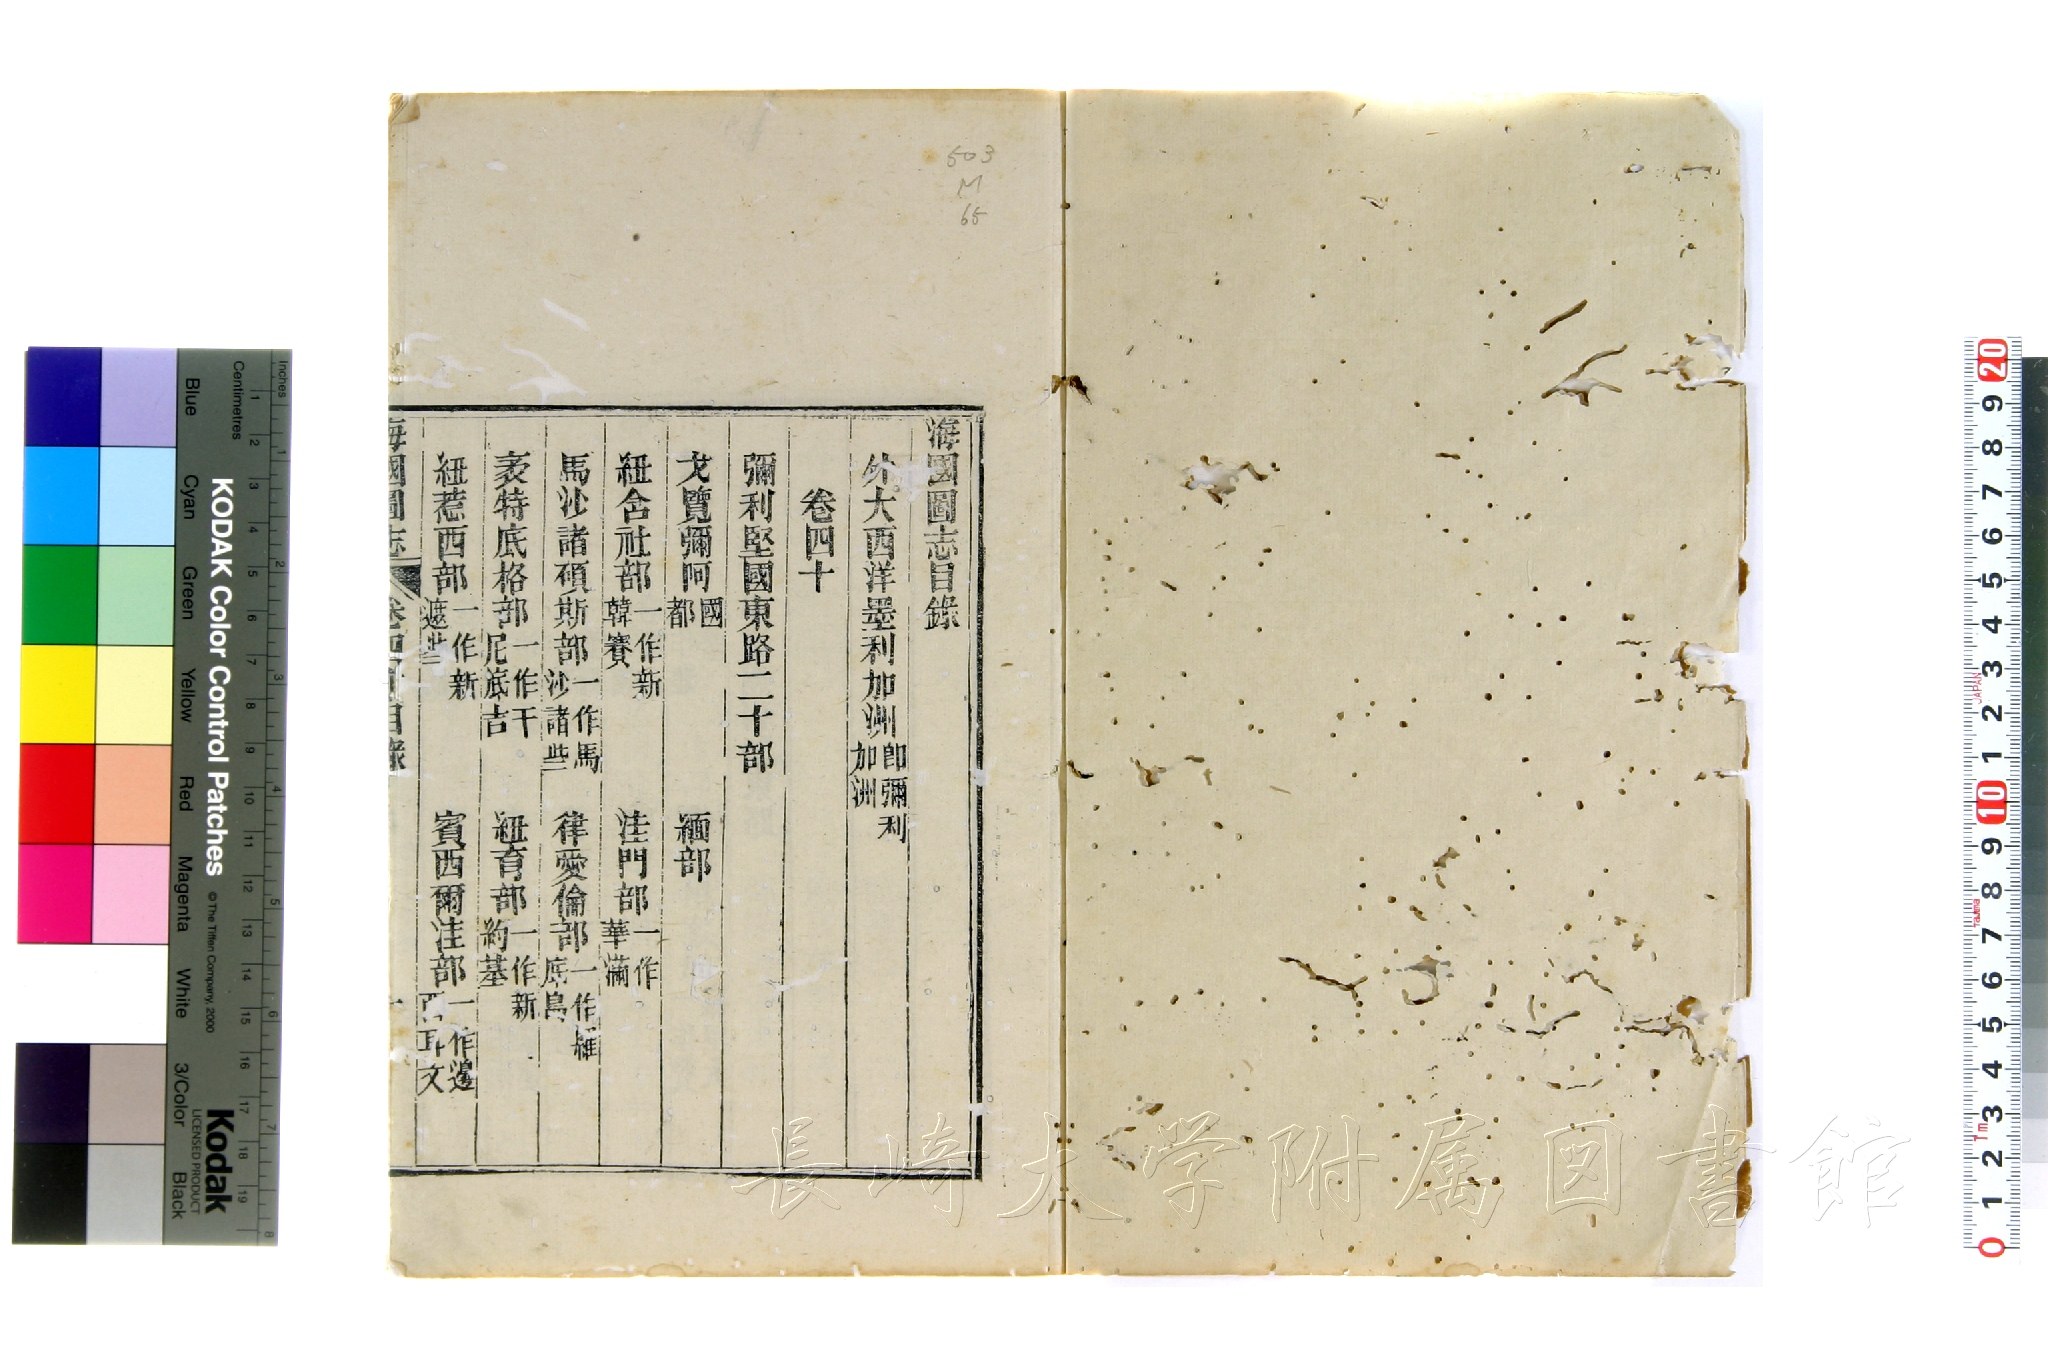 503
M
65
海國圖志目錄
外大西洋墨利加洲 卽彌利加洲
卷四十
彌利堅國東路二十部
戈覽彌阿 國都 緬部
紐舍社部 一作新韓賽 洼門部 一作華滿
馬沙諸碩斯部 一作馬沙諸些 律愛倫部 一作羅底島
衮特底格部 一作干尼底吉 紐育部 一作新約基
紐惹西部 一作新遮些 賓西爾洼部 一作邊西耳文
海國圖志 卷四十目錄 一
長崎大学附属図書館
KODAK Color Control Patches
© The Tiffen Company, 2000
Kodak
LICENSED PRODUCT
Inches
Centimetres
Blue
Cyan
Green
Yellow
Red
Magenta
White
3/Color
Black
1 2 3 4 5 6 7 8 9 10 11 12 13 14 15 16 17 18 19
1 2 3 4 5 6 7 8
20 9 8 7 6 5 4 3 2 1 10 9 8 7 6 5 4 3 2 1 0
JAPAN